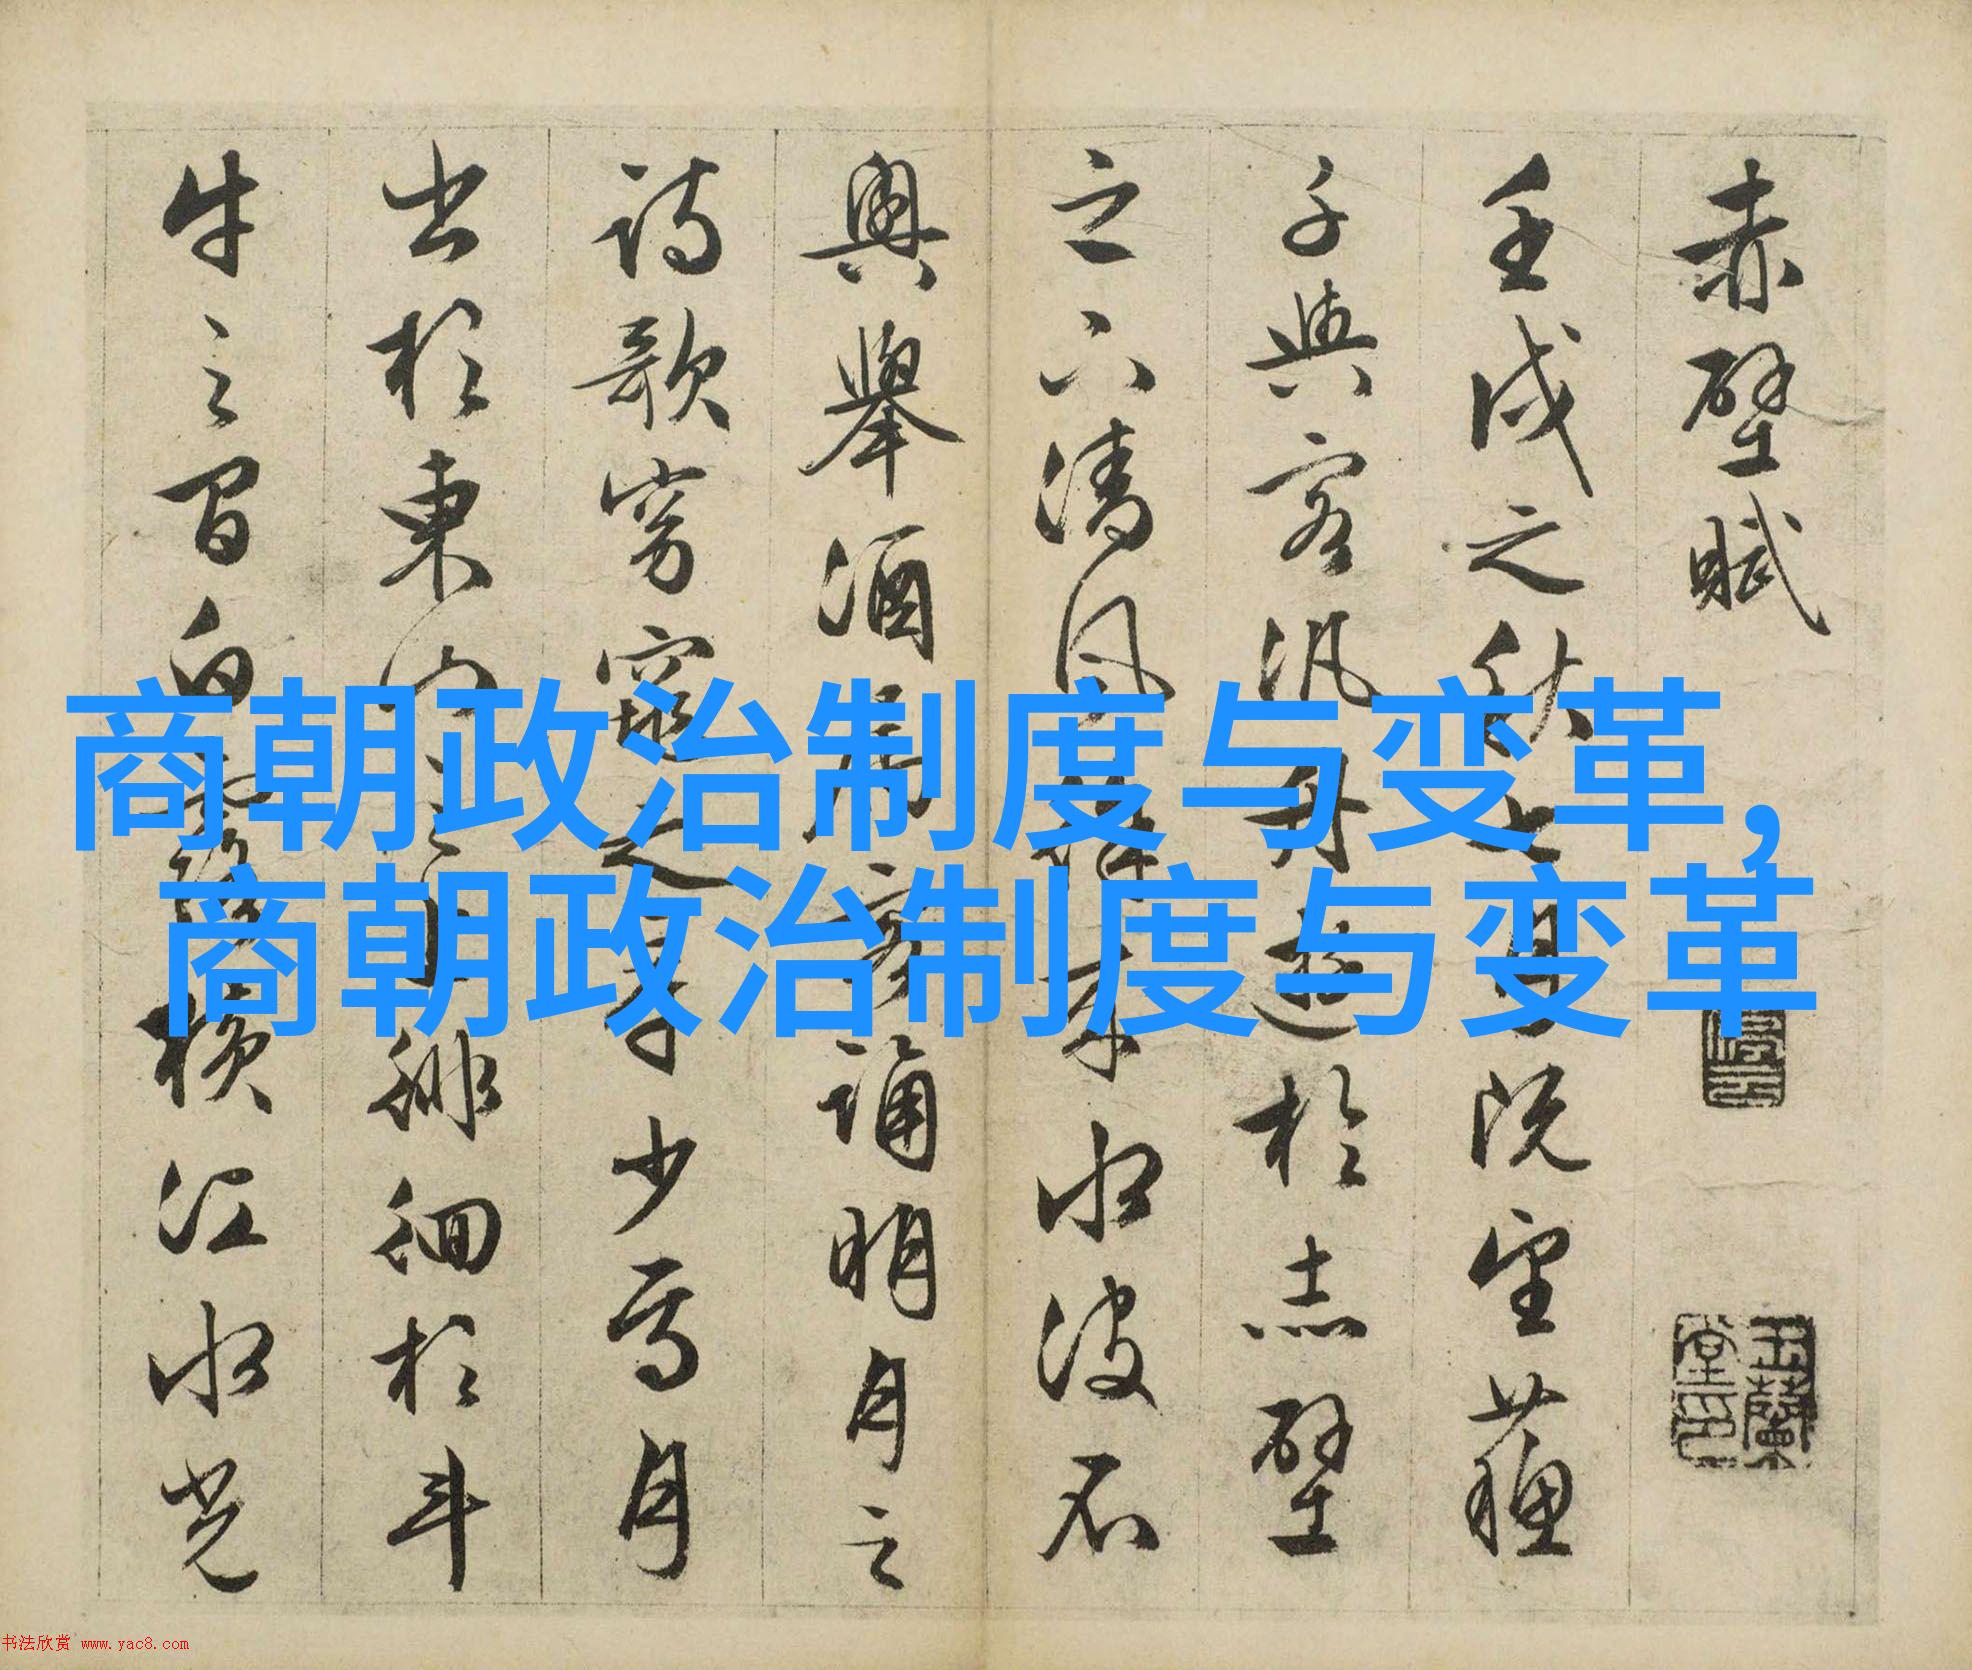 赤壁賦
壬戌之秋七月既望蘓
子與客汎舟遊於赤壁
之下清風徐来水波不
興舉酒屬客誦明月之
詩歌窈窕之章少焉月
出於東山之上徘徊於斗
牛之間白露橫江水光
玉蘭堂印
商朝政治制度与变革,
商朝政治制度与变革
书法欣赏 www.yac8.com